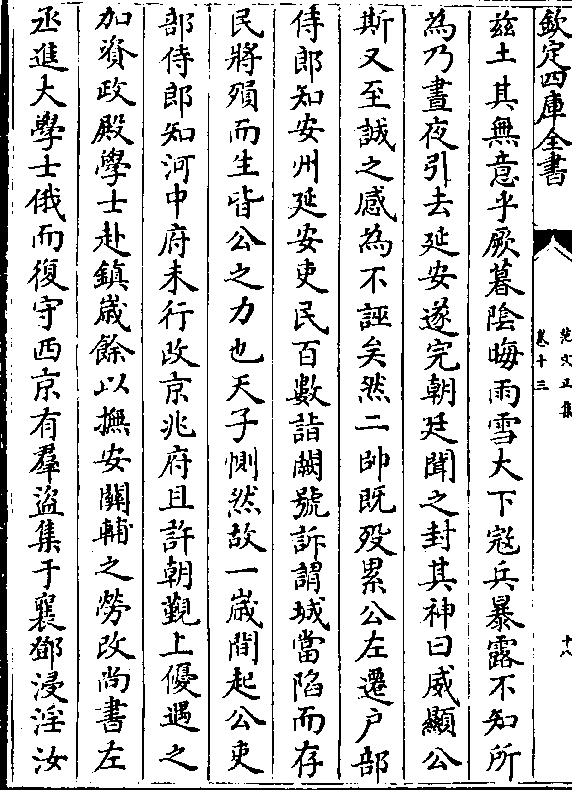 欽定四庫全書
范文正集
卷十三
十八
兹土其無意乎厥暮陰晦雨雪大下寇兵暴露不知所
為乃晝夜引去延安遂完朝廷聞之封其神曰威顯公
斯又至誠之感為不誣矣然二帥既歿累公左遷户部
侍郎知安州延安吏民百數詣闕號訴謂城當陷而存
民將殞而生皆公之力也天子惻然故一歲間起公吏
部侍郎知河中府未行改京兆府且許朝覲上優遇之
加資政殿學士赴鎮歲餘以撫安關輔之勞改尚書左
丞進大學士俄而復守西京有羣盜集于襄鄧浸淫汝